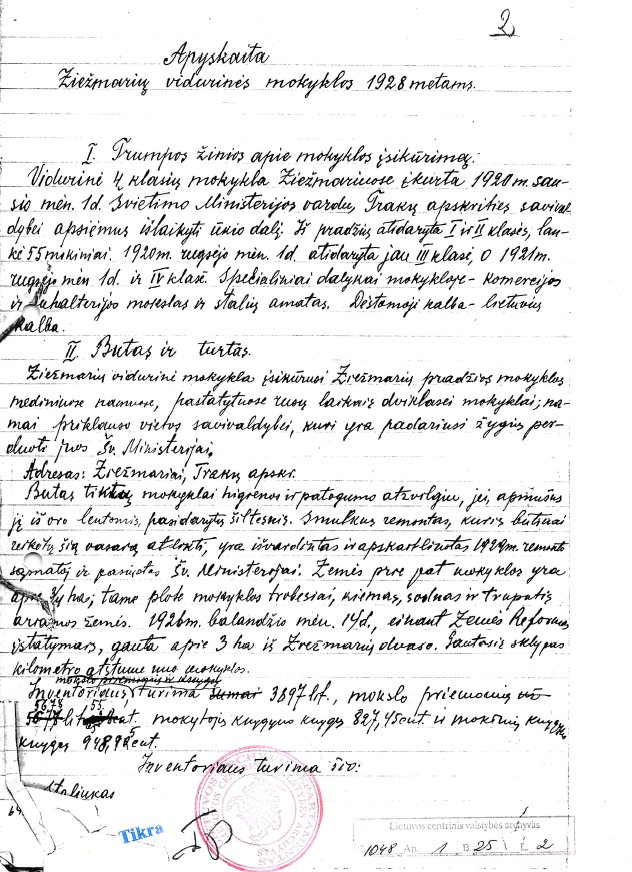 2
Apyskaita
Žiežmarių vidurinės mokyklos 1928 metams.
I. Trumpos žinios apie mokyklos įsikūrimą:
Vidurinė 4 klasių mokykla Žiežmariuose įkurta 1920 m. sau-
sio mėn. 1d. Švietimo Ministerijos vardu, Trakų apskrities savival-
dybei apsiėmus išlaikyti ūkio dalį. Iš pradžių atidaryta I ir II klasės, lan-
kė 55 mokiniai. 1920m. rugsėjo mėn. 1d. atidaryta jau III klasė, o 1921m.
rugsėjo mėn 1d. ir IV klasė. Specialiniai dalykai mokykloje - komercijos
ir buhalterijos mokslas ir stalių amatas. Dėstomoji kalba - lietuvių
kalba.
II. Butas ir turtas.
Žiežmarių vidurinė mokykla įsikūrusi Žiežmarių pradžios mokyklos
mediniuose namuose, pastatytuose rusų laikais dviklasei mokyklai; na-
mai priklauso vietos savivaldybei, kuri yra padariusi žygius per-
duoti juos Šv. Ministerijai,
Adresas: Žiežmariai, Trakų apskr.
Butas tiktų mokyklai higienos ir patogumo atžvilgiu, jei, apmušus
jį iš oro lentomis, pasidarytų šiltesnis. Smulkus remontas, kuris būtinai
reikėtų šią vasarą atlikti, yra išvardintas ir apskaitliuotas 1929m. remonto
sąmatoj ir pasiųstas Šv. Ministerijai. Žemės prie pat mokyklos yra
apie ha; tame plote mokyklos trobesiai, kiemas, sodnas ir truputis
ariamos žemės. 1926m. balandžio mėn. 14d., einant Žemės Reformos
įstatymais, gauta apie 3 ha iš Žiežmarių dvaro. Gautasis sklypas
kilometro atstume nuo mokyklos.
mokslo priemonių ir knygų
Inventoriaus turima 3897 lit., mokslo priemonių
5678 55
lit. cent. mokytojų knygyno knygų 827,45 cent. ir mokinių knygyno
knygų 948,95 cent.
Inventoriaus turima šio:
Staliukas
64
Tikra
Lietuvos centrinis valstybės archyvas
1048 Ap. 1 B. 25 L. 2